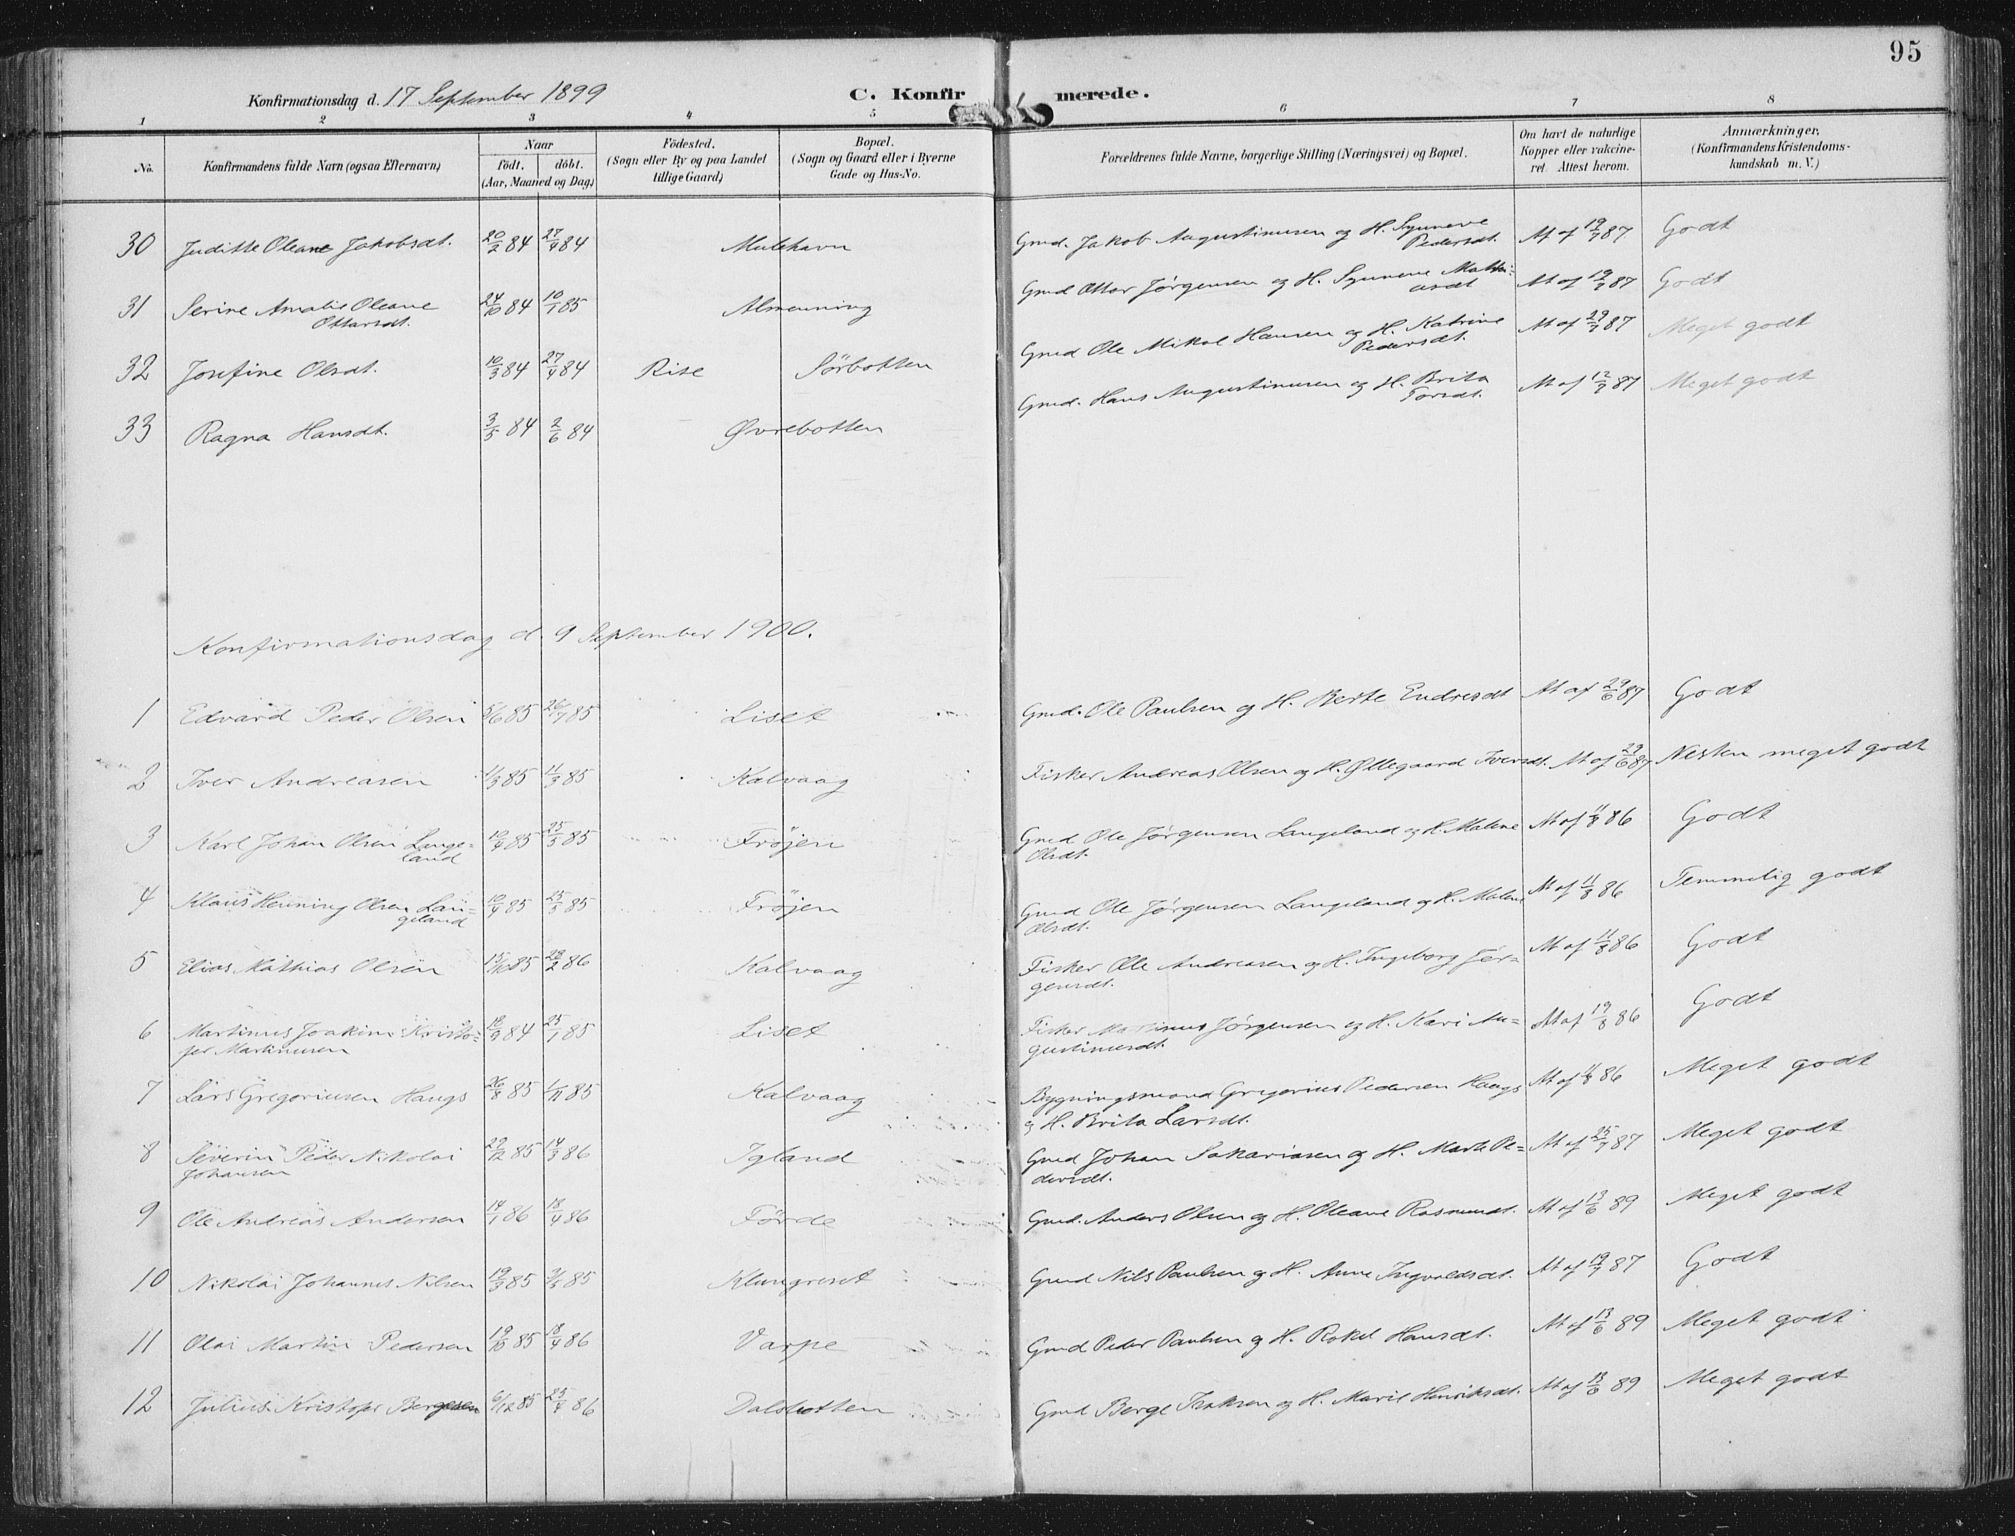 95
Konfirmationsdag d. 17 September 1899
C. Konfirmerede.
1 2 3 4 5 6 7 8
No. Konfirmandens fulde Navn (ogsaa Efternavn) Naar födt. döbt. (Aar, Maaned og Dag) Födested. (Sogn eller By og paa Landet tillige Gaard) Bopæl. (Sogn og Gaard eller i Byerne Gade og Hus-No. Forældrenes fulde Navne, borgerlige Stilling (Næringsvei) og Bopæl. Om havt de naturlige Kopper eller vakcineret. Attest herom. Anmærkninger, (Konfirmandens Kristendomskundskab m. V.)
30 Juditte Oleane Jakobsdt. 20/2 84 27/4 84 Mulehavn Gmd. Jakob Augustinusen og H. Synneve Pedersdt. At af 19/7 87 Godt
31 Serine Amalie Oleane Ottarsdt. 24/10 84 10/1 85 Almenning Gmd Ottar Jørgensen og H. Synneve Mathiasdt At af 19/7 87 Godt
32 Josefine Olsdt. 10/3 84 27/4 84 Rise Sörbotten Gmd Ole Mikal Hansen og H. Katrine Pedersdt. At af 29/7 87 Meget godt
33 Ragna Hansdt. 3/5 84 2/6 84 Øvrebotten Gmd. Hans Augustinusen og H. Brita Torsdt. At af 12/7 87 Meget godt
Konfirmationsdag d. 9 September 1900.
1 Edvard Peder Olsen 5/6 85 26/7 85 Liset Gmd. Ole Paulsen og H. Berte Endresdt At af 29/6 87 Godt
2 Iver Andreasen 1/3 85 11/3 85 Kalvaag Fisker Andreas Olsen og H. Øllegaard Iversdt. At af 29/6 87 Nesten meget godt
3 Karl Johan Olsen Langeland 10/4 85 25/5 85 Fröjen Gmd Ole Jørgensen Langeland og H. Malene Olsdt. At af 11/8 86 Godt
4 Klaus Henning Olsen Langeland 10/4 85 25/5 85 Fröjen Gmd Ole Jørgensen Langeland og H. Malene Olsdt. At af 11/8 86 Temmelig godt
5 Elias Mathias Olsen 15/10 85 28/2 86 Kalvaag Fisker Ole Andreasen og H. Ingeborg Jørgensdt. At af 11/8 86 Godt
6 Martinus Joakim Kristofer Martinusen 84 25/1 85 Liset Fisker Martinus Jørgensen og H. Kari Augustinusdt. At af 19/8 86 Godt
7 Lars Gregoriusen Haugs 26/8 85 1/11 85 Kalvaag Bygningsmand Gregorius Pedersen Haugs og H. Brita Larsdt. At af 11/8 86 Meget godt
8 Severin Peder Nikolai Johansen 29/12 85 14/3 86 Igland Gmd Johan Sakariasen og H. Marta Pedersdt. At af 25/7 87 Meget godt
9 Ole Andreas Andersen 14/1 86 18/4 86 Förde Gmd. Anders Olsen og H. Oleane Rasmusdt. At af 13/6 89 Meget godt
10 Nikolai Johannes Nilsen 19/3 85 85 Klungreset Gmd Nils Paulsen og H. Anne Ingvaldsdt. At af 19/7 87 Godt
11 Olai Martin Pedersen 19/10 85 18/4 86 Varpe Gmd Peder Paulsen og H. Rakel Hansdt. At af 13/6 89 Meget godt
12 Julius Kristofer Bergesen 6/12 85 25/4 86 Dalsbotten Gmd Berge Isaksen og H. Marie Henriksdt. At af 13/6 89 Meget godt